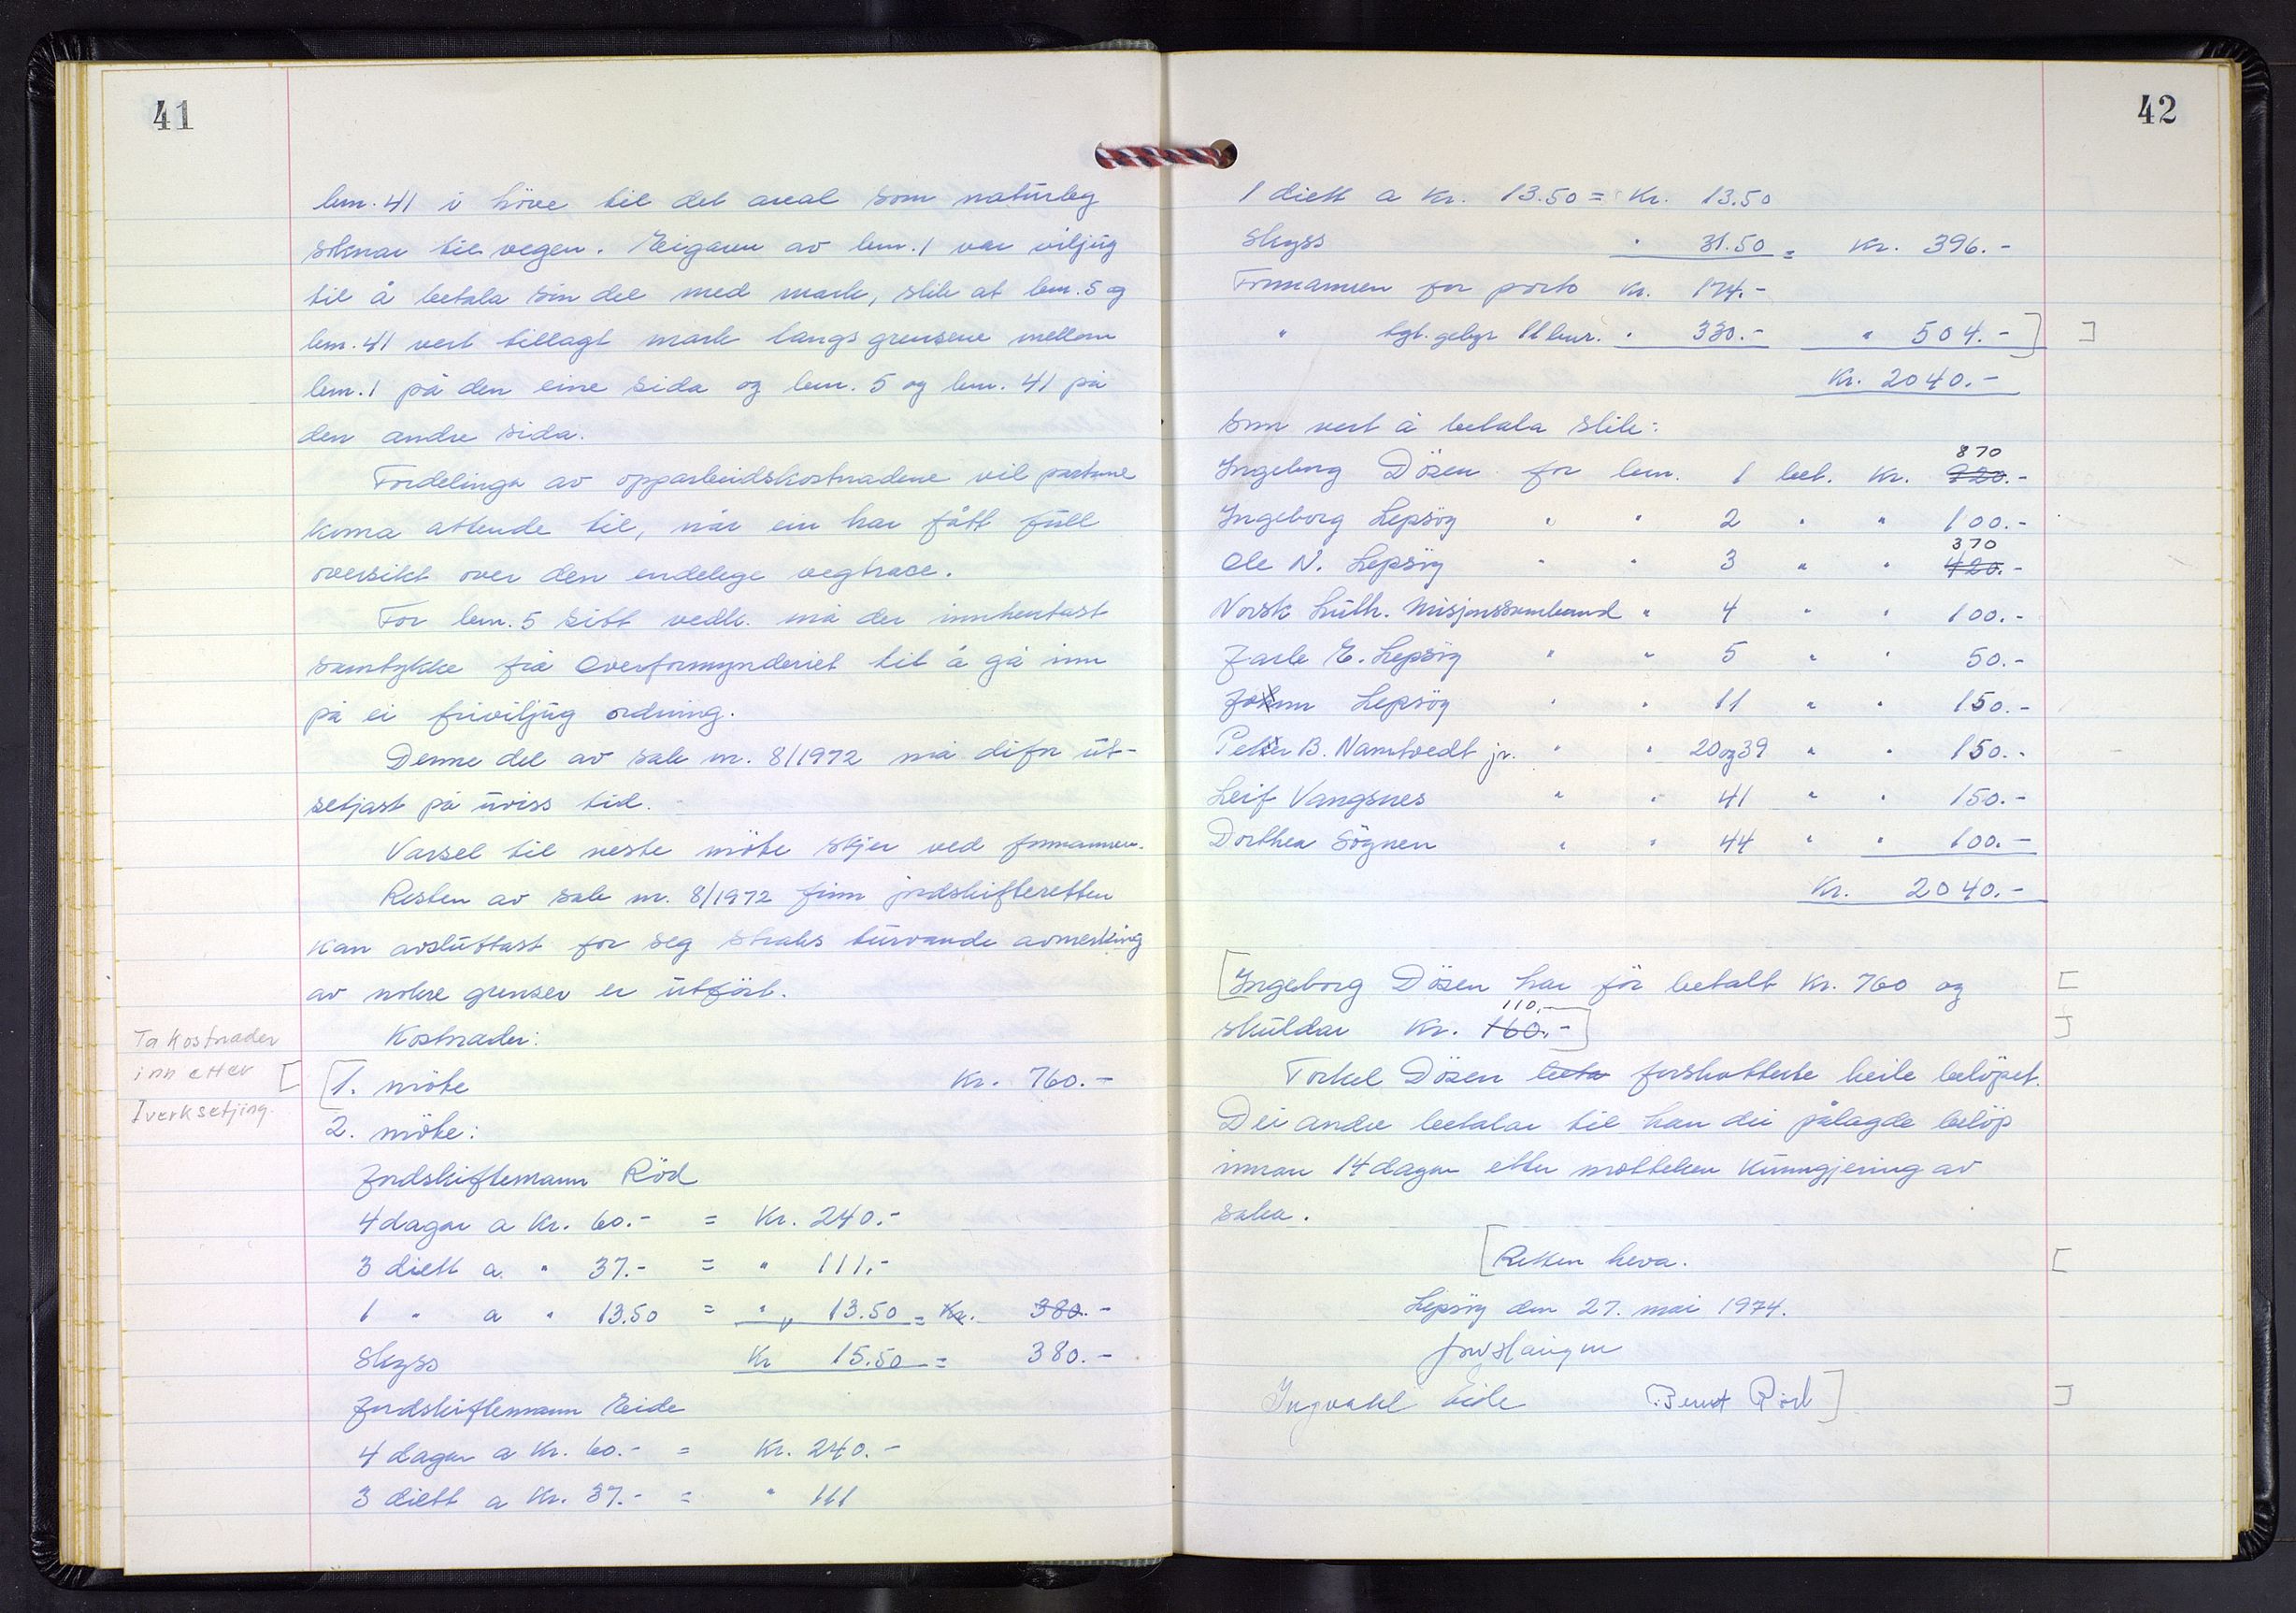 41
bnr. 41 i höve til det areal som naturleg
soknar til vegen. Eigaren av bnr. 1 var viljug
til å betala sin del med mark, slik at bnr. 5 og
bnr. 41 vert tillagt mark langs grensene mellom
bnr. 1 på den eine sida og bnr. 5 og bnr. 41 på
den andre sida.
Fordelinga av opparbeidskostnadene vil partane
koma attende til, når ein har fått full
oversikt over den endelege vegtrace.
For bnr. 5 sitt vedk. må der innhentast
samtykke frå Overformynderiet til å gå inn
på ei friviljug ordning.
Denne del av sak nr. 8/1972 må difor ut-
setjast på uviss tid.
Varsel til neste möte skjer ved formannen.
Resten av sak nr. 8/1972 finn jordskifteretten
kan avsluttast for seg straks turvande avmerking
av nokre grenser er utfört.
Kostnader:
Ta kostnader
inn etter
Iverksetjing.
[ [1. möte Kr. 760.-
2. möte:
Jordskiftemann Röd
4 dagar a Kr. 60.- = Kr. 240.-
3 diett a " 37.- = " 111.-
1 " a " 13.50 = " 13.50 = Kr. 380.-
Skyss Kr 15.50 = 380.-
Jordskiftemann Eide
4 dagar a Kr. 60.- = Kr. 240.-
3 diett a Kr. 37.- = " 111
42
1 diett a Kr. 13.50 = Kr. 13.50
Skyss " 31.50 = Kr. 396.-
Formannen for porto Kr. 174.-
" tgl. gebyr 11 bnr. " 330.- " 504.-] ]
Kr. 2040.-
Som vert å betala slik:
870
Ingeborg Dösen for bnr. 1 bet. Kr. 920.-
Ingeborg Lepsöy " " 2 " " 100.-
370
Ole N. Lepsöy " " 3 " " 420.-
Norsk Luth. Misjonssamband " 4 " " 100.-
Jarle E. Lepsöy " " 5 " " 50.-
Johnn Lepsöy " " 11 " " 150.-
Petter B. Namtvedt jr. " " 20 og 39 " " 150.-
Leif Vangsnes " " 41 " " 150.-
Dorthea Sögnen " " 44 " " 100.-
Kr. 2040.-
[Ingeborg Dösen har för betalt Kr. 760 og [
110.-
skuldar Kr. 160.-] ]
Torkel Dösen beta forskotterte heile belöpet.
Dei andre betalar til han dei pålagde belöp
innan 14 dagar etter motteken kunngjering av
saka.
[Retten heva. [
Lepsöy den 27. mai 1974.
Ingvald Eide Bernt Röd] ]